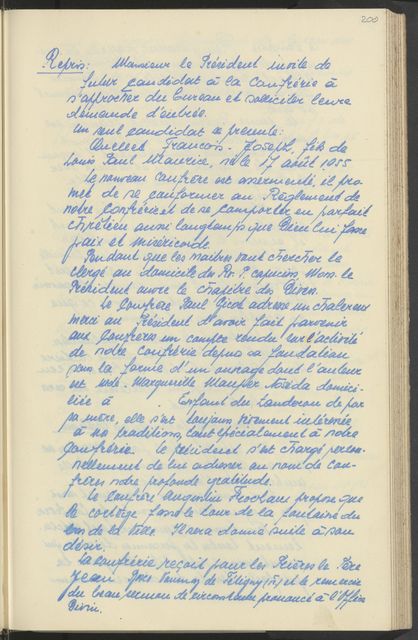 200
Repris: Monsieur le Président invite de
futur candidat à la Confrérie à
s'approcher du bureau et solliciter leurs
demande d'entrée.
Un seul candidat se présente:
Quellet François-Joseph, fils de
Louis Paul Maurice, né le 17 août 1955
Le nouveau confrère est assermenté, il pro-
met de se conformer au Règlement de
notre Confrérie et de se comporter en parfait
chrétien aussi longtemps que Dieu lui fasse
paix et miséricorde
Pendant que les maîtres vont chercher le
clergé au domicile des Rv. P. capucins Mons. le
Président ouvre le chapitre des Divers.
Le Confrère Paul Girod adresse un chaleureux
merci au Président d'avoir fait parvenir
aux Confrères un compte rendu sur l'activité
de notre Confrérie depuis sa fondation
sous la forme d'un ouvrage dont l'auteur
est Mde. Marguerite domici-
liée à . Enfant du Landeron de par
sa mère, elle s'est toujours vivement intéressée
à nos traditions, tout spécialement à notre
Confrérie. Le président s'est chargé person-
nellement de lui adresser au nom de con-
frères notre profonde gratitude.
Le confrère Augustin Frochaux propose que
le cortège fasse le tour de la fontaine du
bas de la Ville Il sera donné suite à son
désir.
La Confrérie reçoit pour les Prières le Père
Jean de et le remercie
du beau sermon de circonstance prononcé à l'Office
Divin.